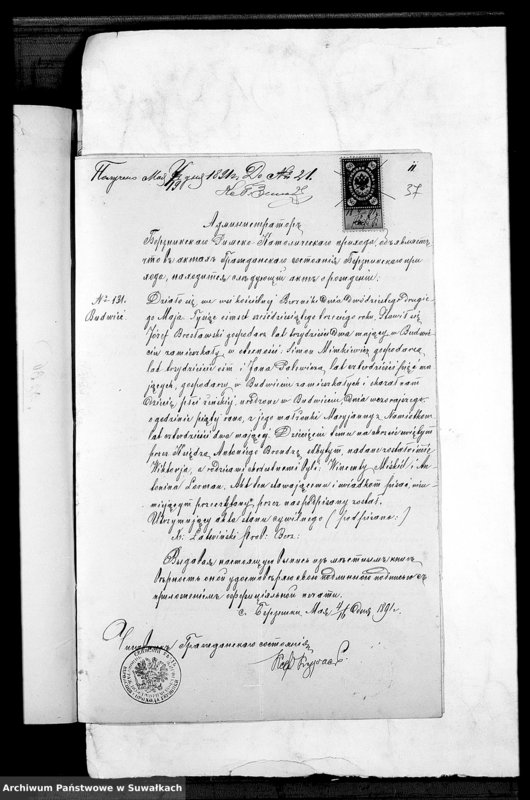 Получено Мая 1891 г. До № 21.
11
37
Администраторъ
Бержникскаго Римско-Католическаго прихода, объявляетъ
что въ актахъ Гражданскаго состоянія Бержникскаго при
хода, находится слѣдующій актъ о рожденіи:
№ 131.
Budwiec.
Działo się we wsi kościelnej Berżnikи dnia dwudziestego drugie
go Maja tysiąc ośmset sześćdziesiątego trzeciego roku. Stawił się
Józef Brosławski gospodarz lat trzydzieści dwa mający w Budwie
ciu zamieszkały, w obecności Simona Minkiewicz gospodarza
lat trzydzieści ośm i Jana lat czterdzieści pięć ma
jących, gospodarzy w Budwieciu zamieszkałych i okazał nam
Dziecię płci żeńskiej urodzone w Budwieciu dnia wczorajszego
o godzinie piątej rano, z jego małżonki Maryjanny z
lat czterdzieści dwa mającej. Dziecięciu temu na chrzcie świętym
przez Księdza Antoniego odbytym, nadane zostało imię
Wiktorja, a rodzicami chrzestnemi byli: Wincenty Miskiel i An
tonina Lerman. Akt ten stawającemu i świadkom pisać nieu
miejącym przeczytany, przez nas podpisany został.
Utrzymujący akta stanu cywilnego (podpisano:)
X. Łatwiński Prob: Berż:
Выдавая настоящую выпись изъ мѣстныхъ книгъ
вѣрность оной удостовѣряю своею подписью съ
приложеніемъ оффиціальной печати.
с. Бержники Мая дня 1891 г.
Чиновникъ Гражданскаго состоянія
Archiwum Państwowe w Suwałkach